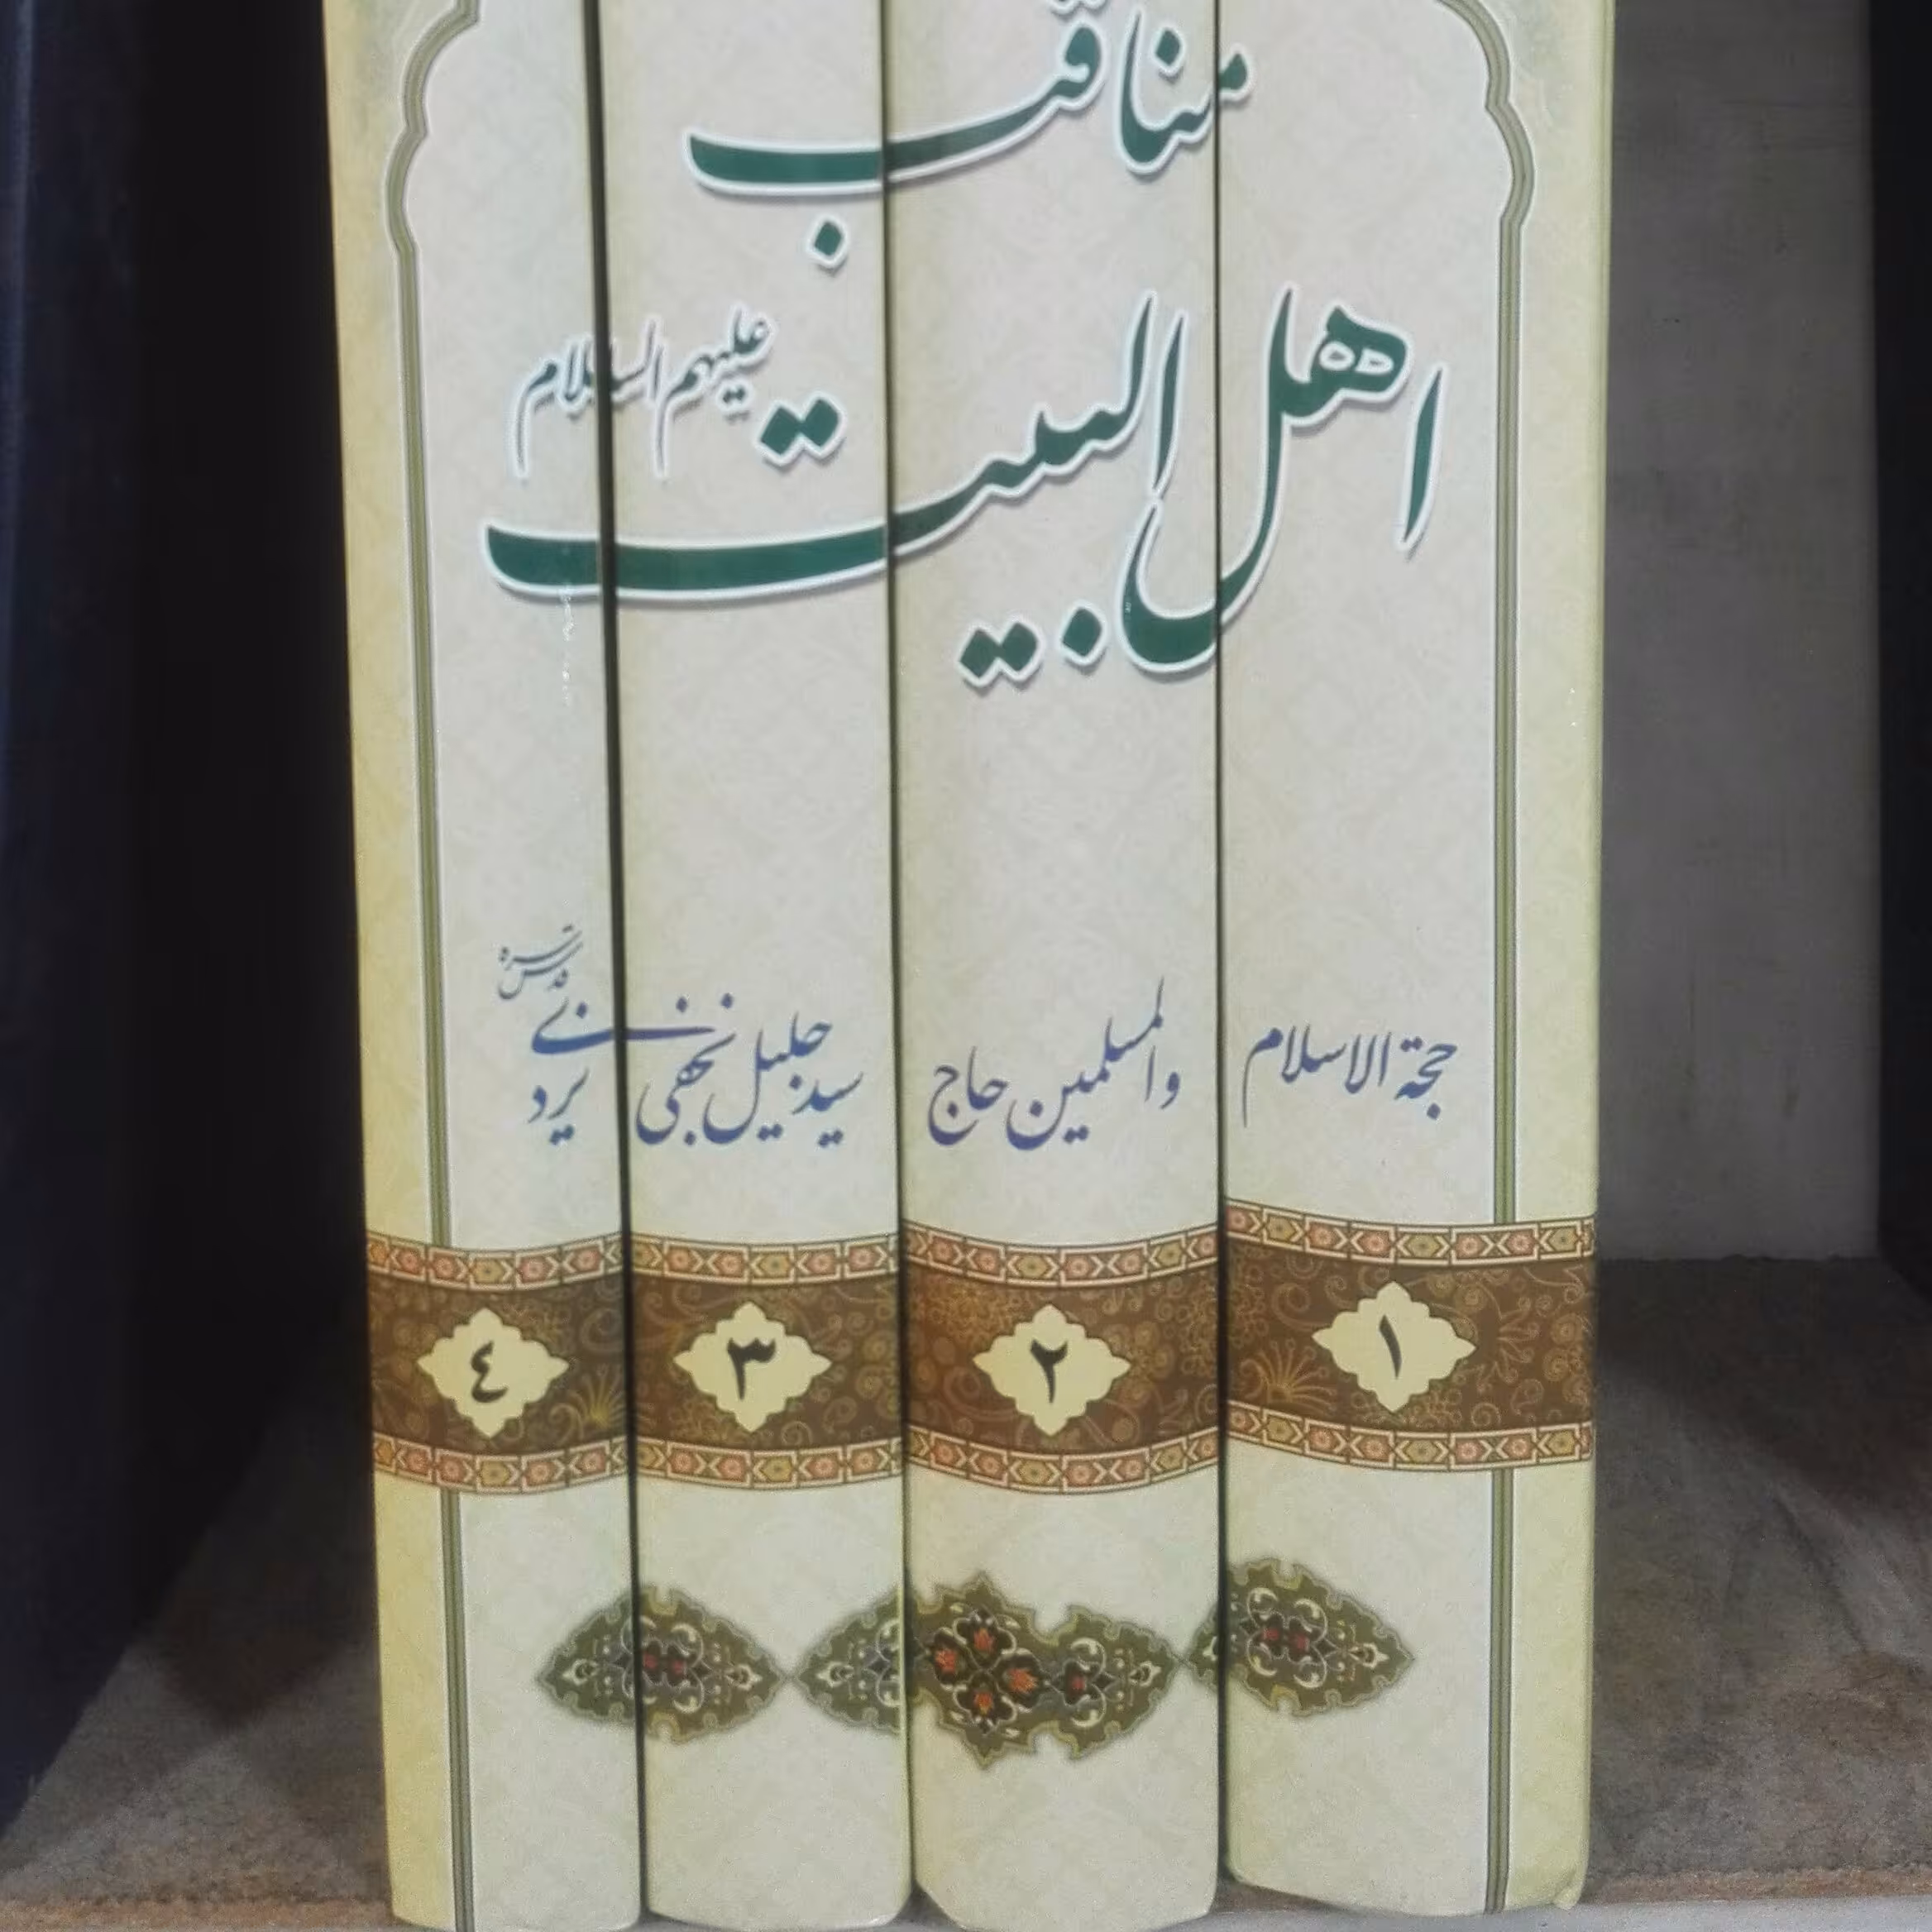 مناقب
اهل البیت علیهم السلام
حجة الاسلام والمسلمین حاج سید جلیل نجفی یزدی قدس سره
۱ ۲ ۳ ٤